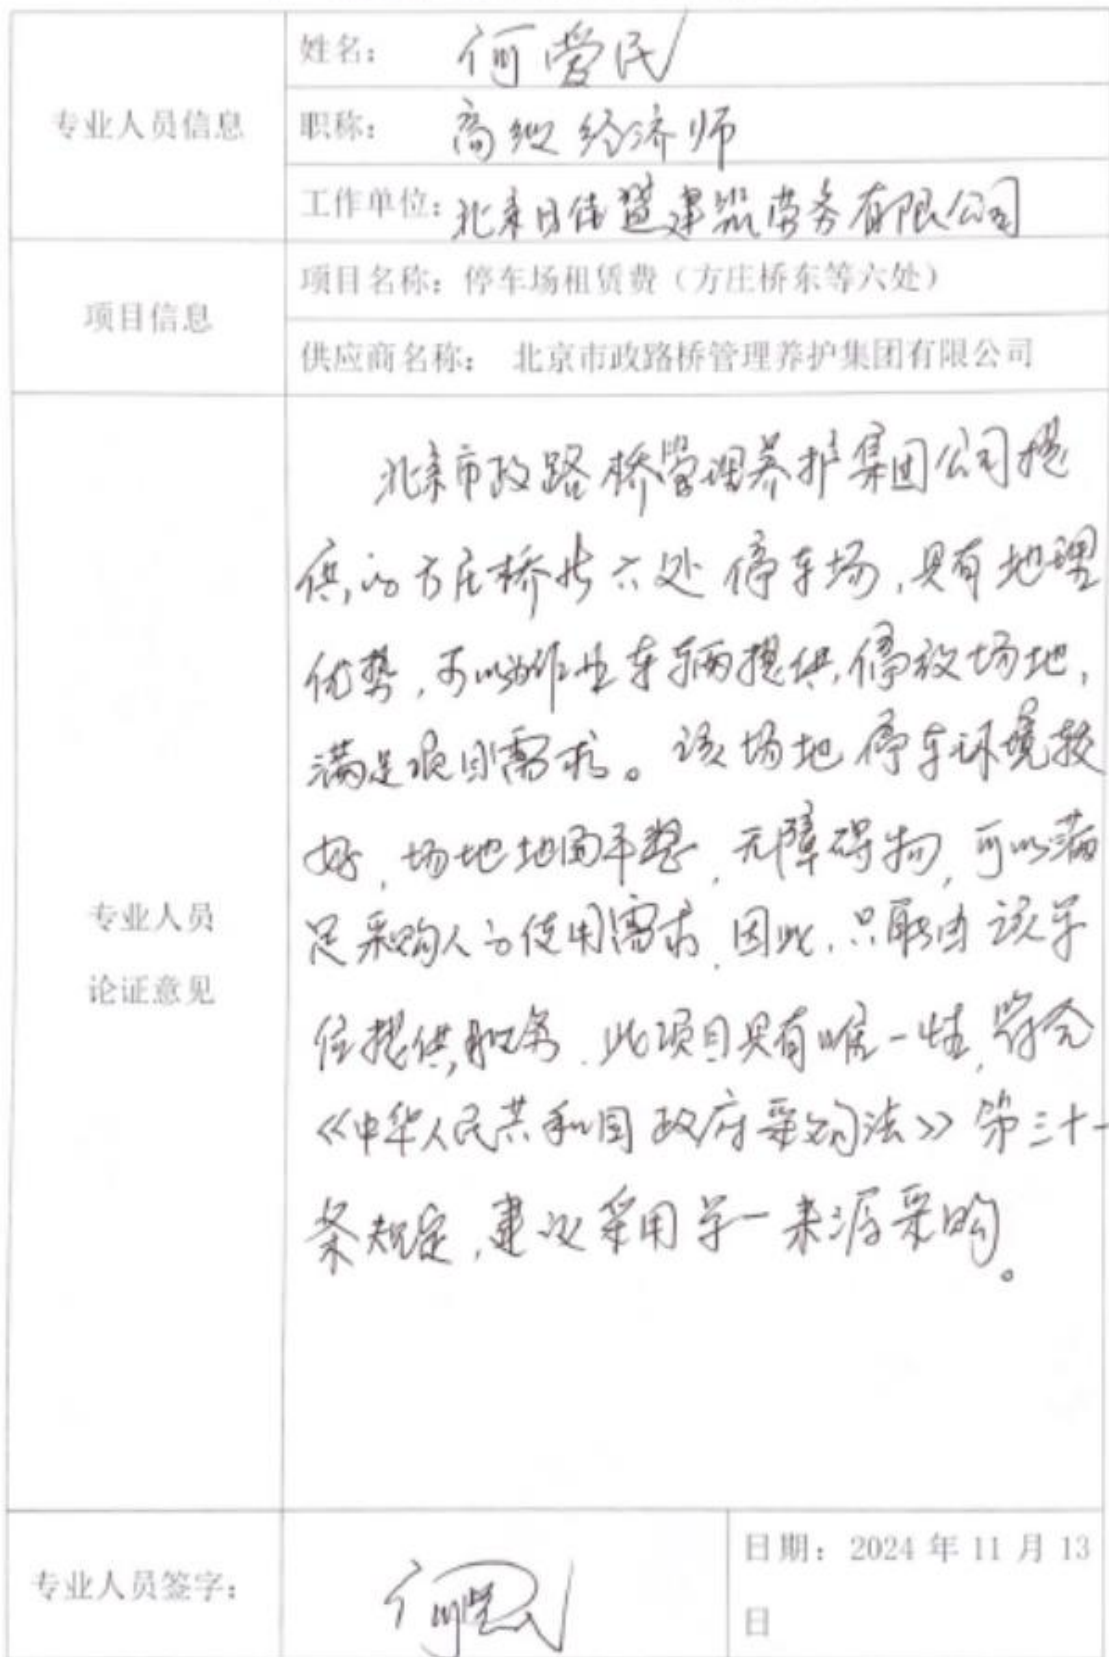 专业人员信息
姓名： 何爱民
职称： 高级经济师
工作单位：北京日佳 建筑劳务有限公司
项目信息
项目名称：停车场租赁费（方庄桥东等六处）
供应商名称： 北京市政路桥管理养护集团有限公司
专业人员
论证意见
北京市政路桥管理养护集团公司提
供的方庄桥等六处停车场，具有地理
优势，可以为作业车辆提供停放场地，
满足项目需求。该场地停车环境较
好，场地地面平整，无障碍物，可以满
足采购人的使用需求，因此，只能由该单
位提供服务，此项目具有唯一性，符合
《中华人民共和国政府采购法》第三十一
条规定，建议采用单一来源采购。
专业人员签字：
日期：2024 年 11 月 13
日